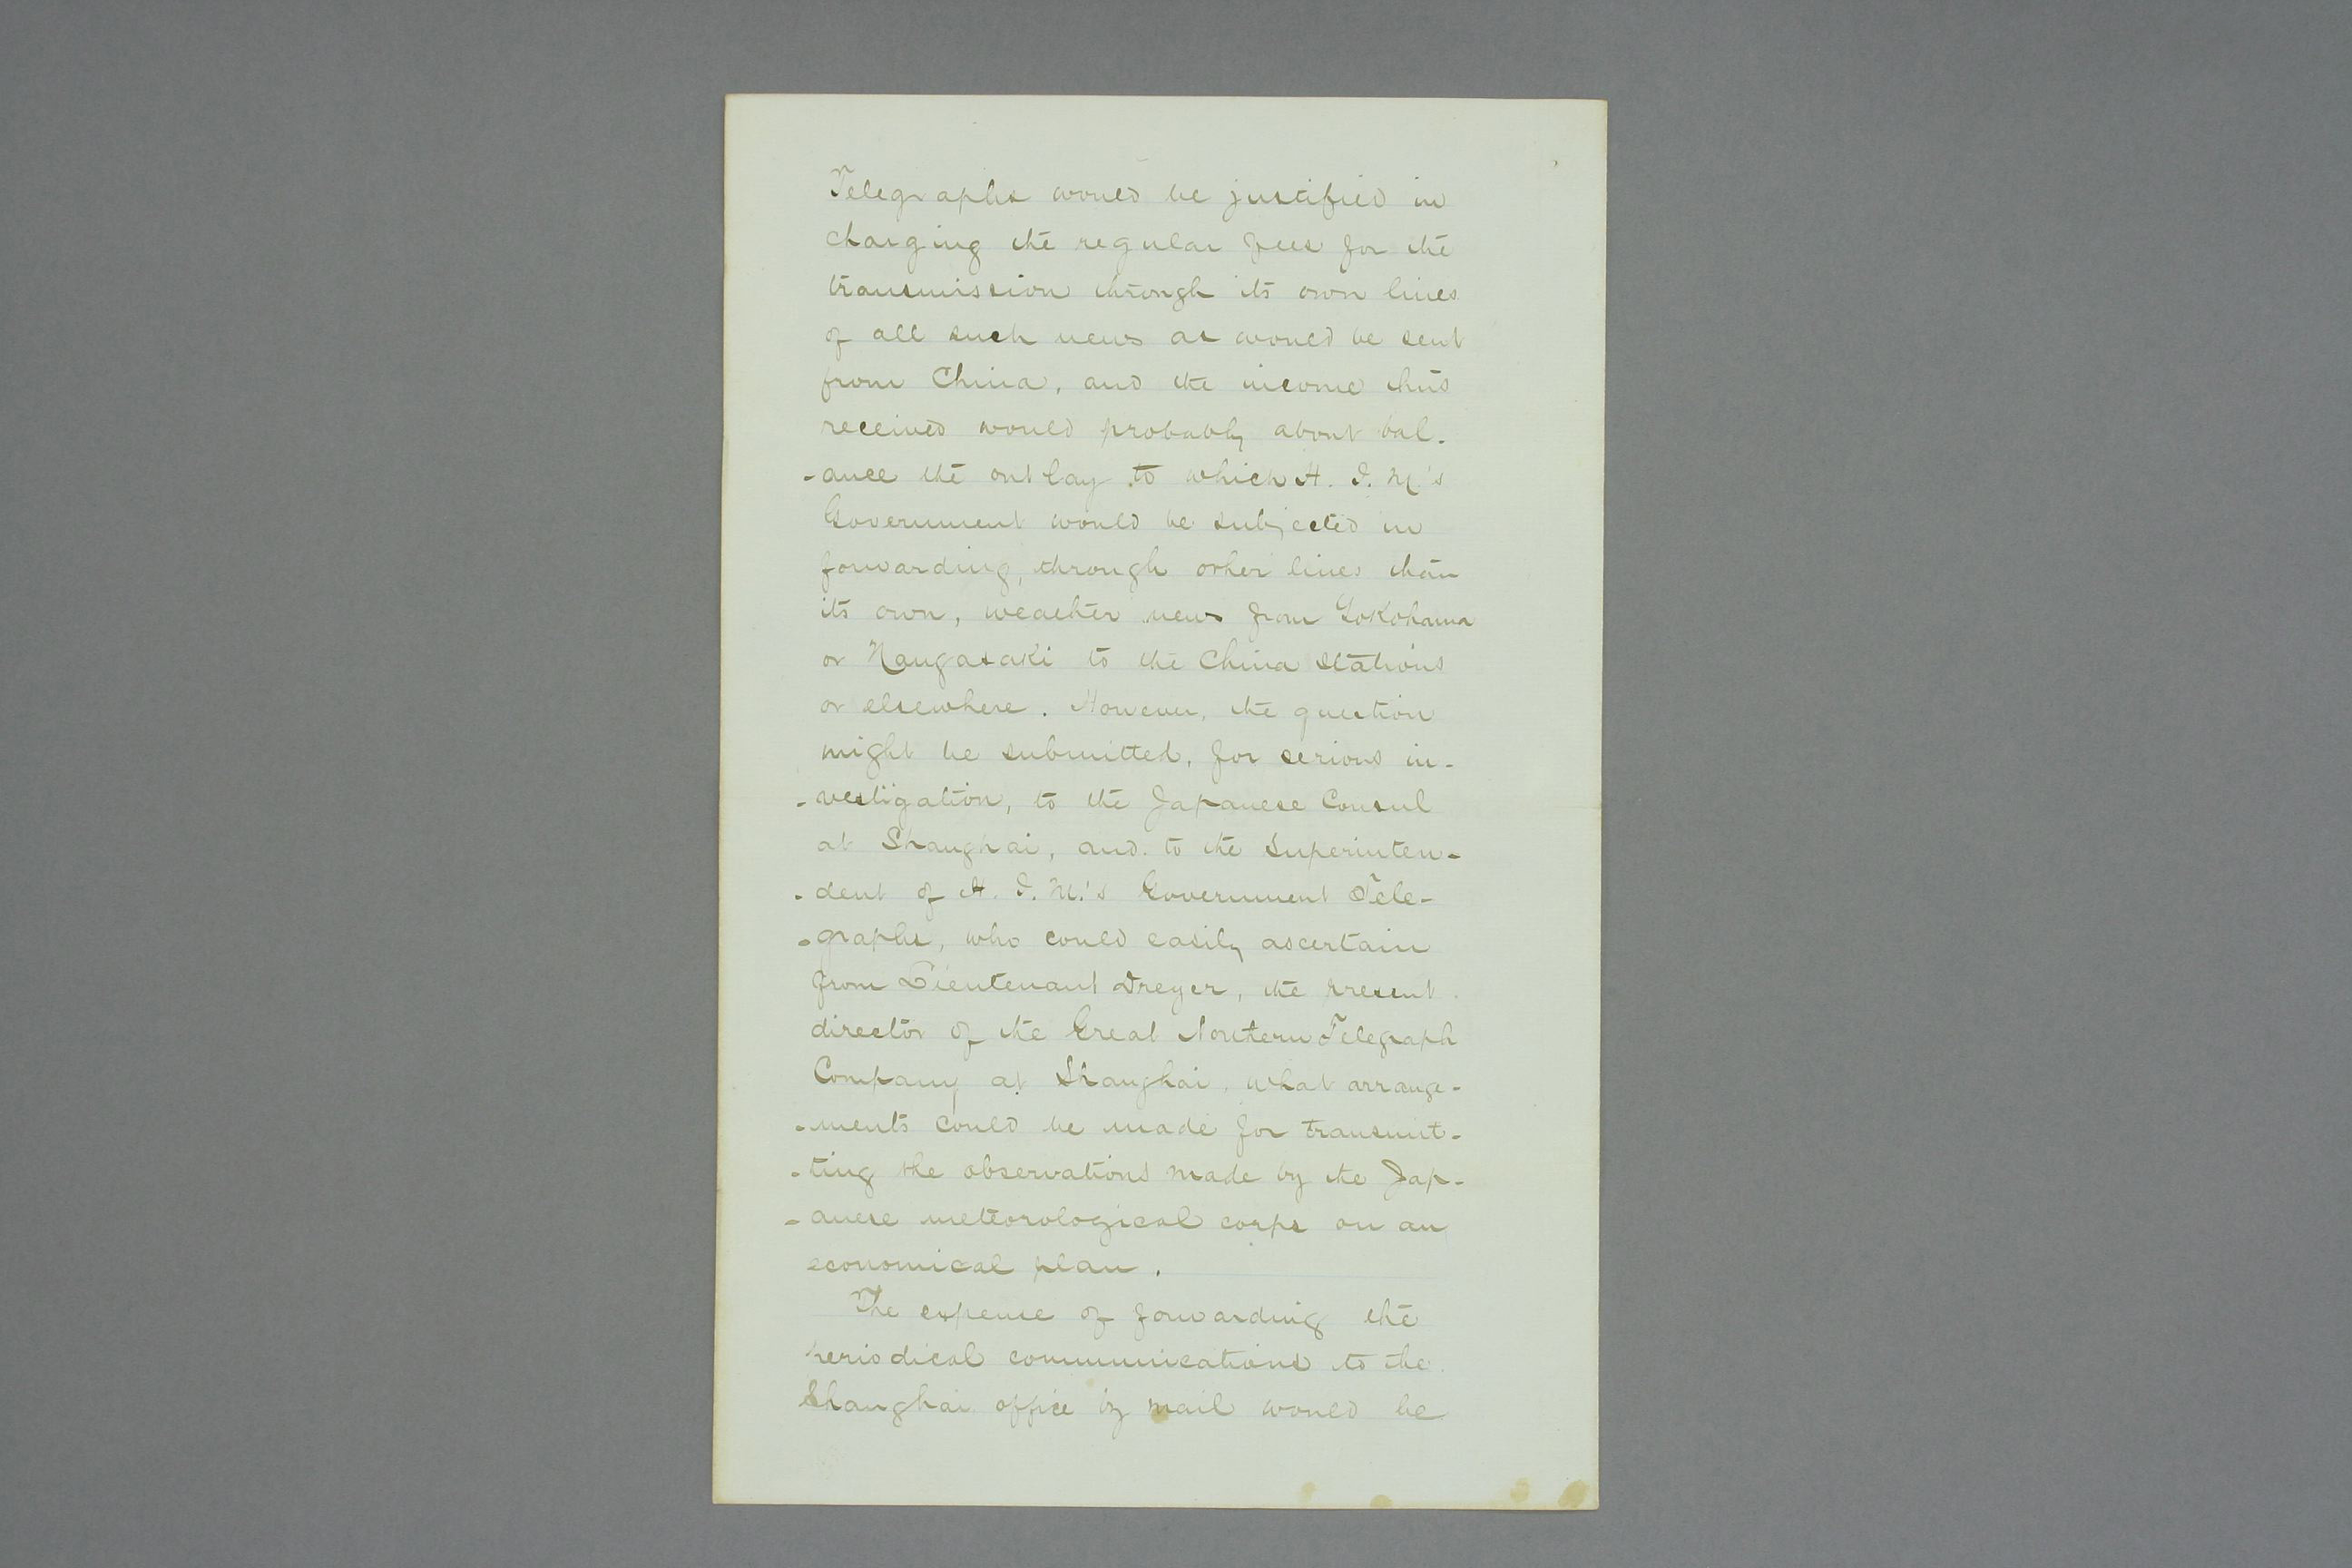 Telegraphs would be justified in
charging the regular fees for the
transmission through its own lines
of all such news as would be sent
from China, and the income thus
received would probably about bal-
-ance the outlay to which H. I. M.'s
Government would be subjected in
forwarding, through other lines than
its own, weather news from Yokohama
or Nangasaki to the China stations
or elsewhere. However, the question
might be submitted, for serious in-
-vestigation, to the Japanese Consul
at Shanghai, and to the Superinten-
-dent of H. I. M.'s Government Tele-
-graphs, who could easily ascertain
from Lieutenant Dreyer, the present
director of the Great Northern Telegraph
Company at Shanghai, what arrange-
-ments could be made for transmit-
-ting the observations made by the Jap-
-anese meteorological corps on an
economical plan.
The expense of forwarding the
periodical communications to the
Shanghai office by mail would be